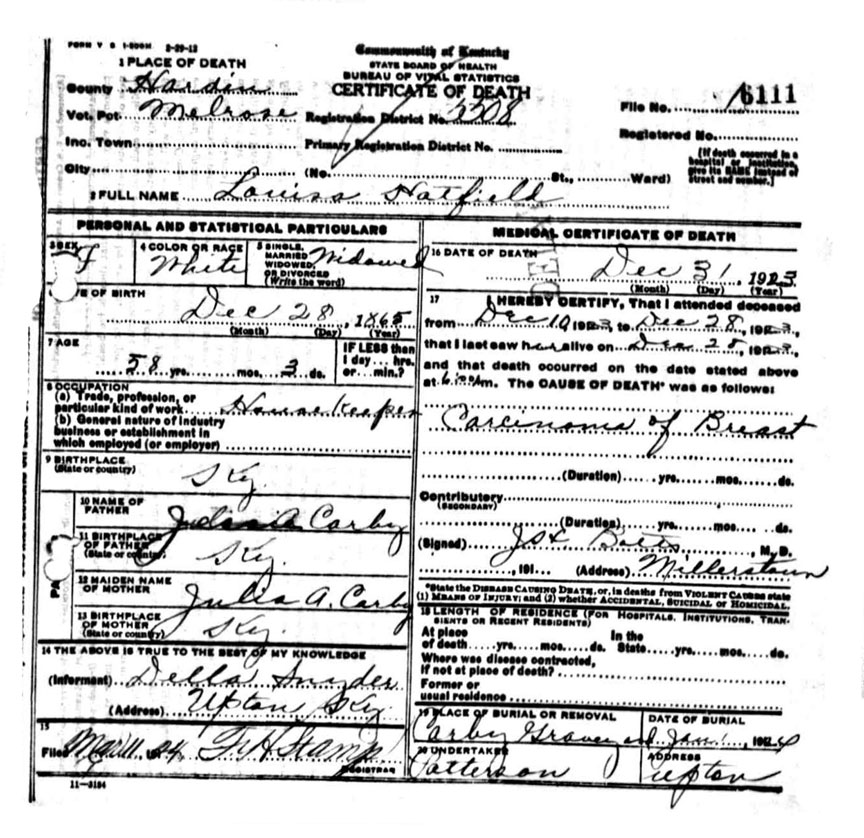 FORM V S 1-500M 2-29-12
Commonwealth of Kentucky
STATE BOARD OF HEALTH
BUREAU OF VITAL STATISTICS
CERTIFICATE OF DEATH
1 PLACE OF DEATH
County Hardin
Vot. Pct. Melrose Registration District No. 5508
File No. 6111
Inc. Town Primary Registration District No.
Registered No.
City (No. St., Ward)
[If death occurred in a hospital or institution, give its NAME instead of street and number.]
2 FULL NAME Louisa Hatfield
PERSONAL AND STATISTICAL PARTICULARS
3 SEX F
4 COLOR OR RACE White
5 SINGLE, MARRIED WIDOWED, OR DIVORCED (Write the word) Widowed
OF BIRTH
Dec 28, 1865
(Month) (Day) (Year)
7 AGE
58 yrs. mos. 3 ds.
IF LESS than 1 day... hrs. or... min.?
8 OCCUPATION
(a) Trade, profession, or
particular kind of work House Keeper
(b) General nature of industry
business or establishment in
which employed (or employer)
9 BIRTHPLACE
(State or country)
Ky.
10 NAME OF FATHER
Carby
11 BIRTHPLACE OF FATHER (State or country)
Ky.
12 MAIDEN NAME OF MOTHER
Julia A. Carby
13 BIRTHPLACE OF MOTHER (State or country)
Ky.
14 THE ABOVE IS TRUE TO THE BEST OF MY KNOWLEDGE
(Informant) Della Snyder
(Address) Upton Ky
15
Filed 24 Stamp
REGISTRAR
11—3184
MEDICAL CERTIFICATE OF DEATH
16 DATE OF DEATH
Dec 31, 1923
(Month) (Day) (Year)
17 I HEREBY CERTIFY, That I attended deceased
from Dec 10 1923, to Dec 28, 1923,
that I last saw her alive on Dec 28, 1923,
and that death occurred on the date stated above
at 6 m. The CAUSE OF DEATH* was as follows:
Carcinoma of Breast
(Duration) yrs. mos. ds.
Contributory
(SECONDARY)
(Duration) yrs. mos. ds.
(Signed) , M.D.
, 191 (Address) Millerstown
*State the DISEASE CAUSING DEATH, or, in deaths from VIOLENT CAUSES state
(1) MEANS OF INJURY; and (2) whether ACCIDENTAL, SUICIDAL or HOMICIDAL.
18 LENGTH OF RESIDENCE (FOR HOSPITALS, INSTITUTIONS, TRANSIENTS OR RECENT RESIDENTS)
At place of death yrs. mos. ds. In the State yrs. mos. ds.
Where was disease contracted,
if not at place of death?
Former or
usual residence
19 PLACE OF BURIAL OR REMOVAL
Carby Graveyard
DATE OF BURIAL
Jan 1, 1924
20 UNDERTAKER
Patterson
ADDRESS
Upton